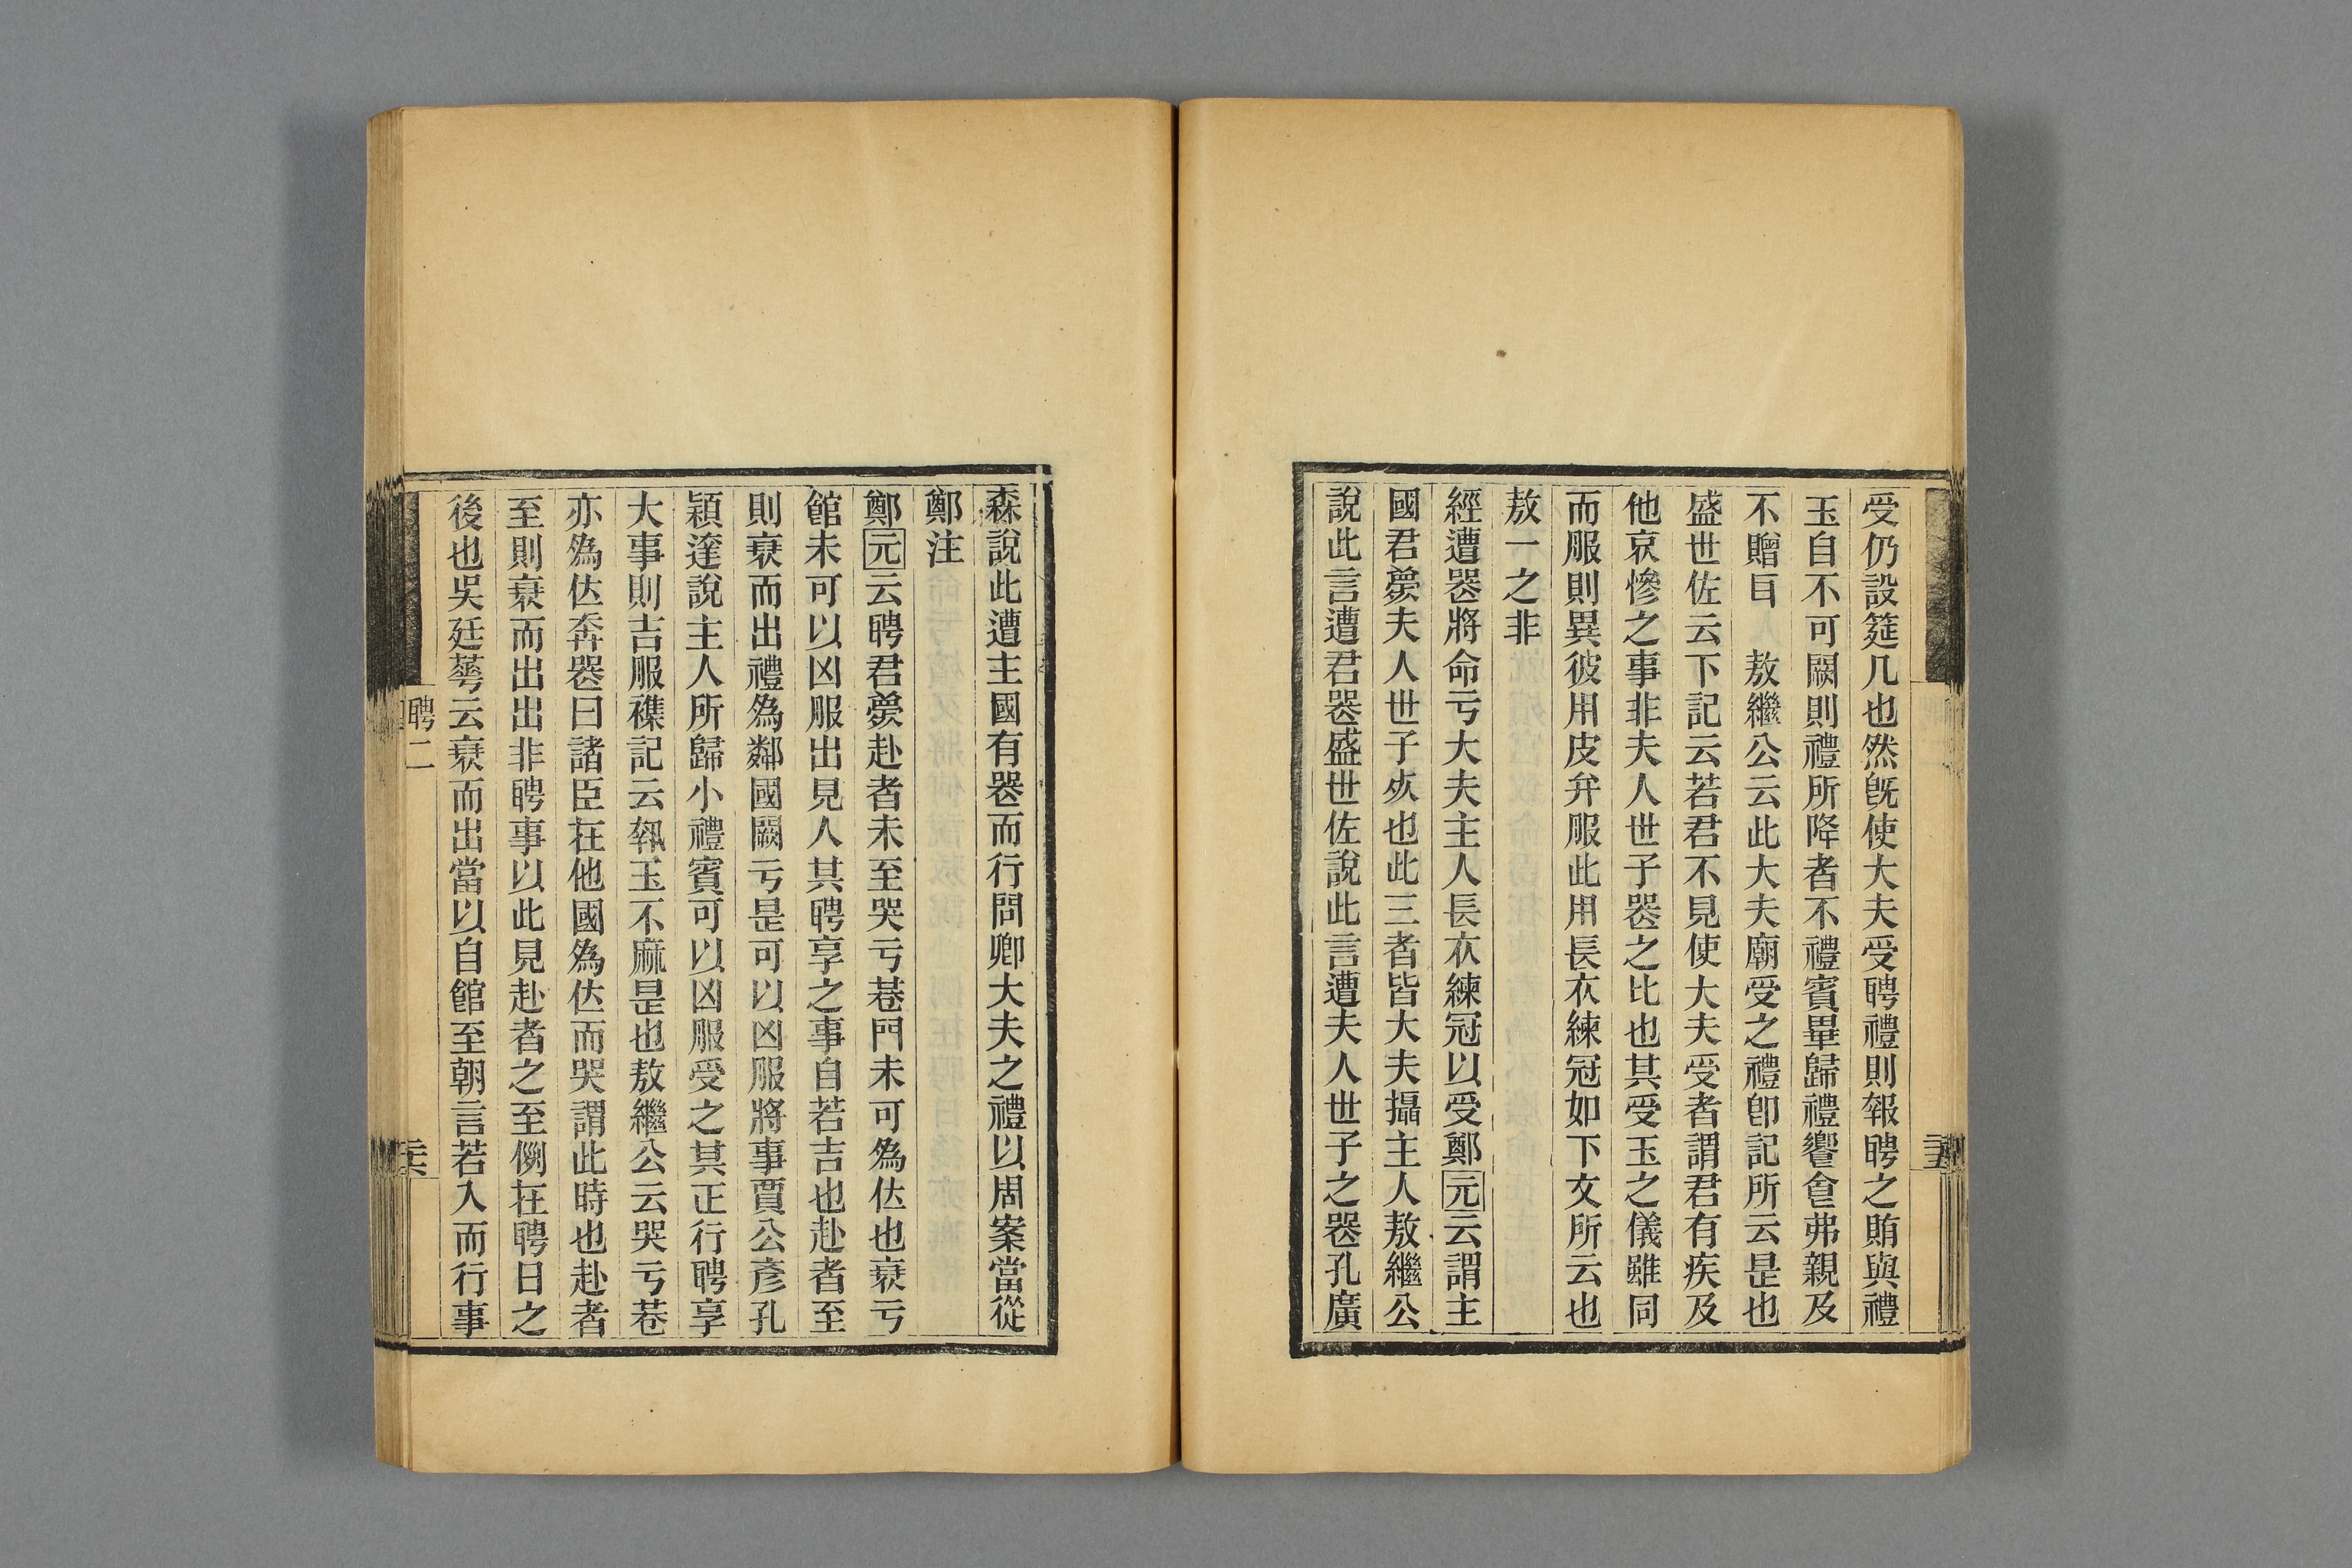 受仍設筵几也然旣使大夫受聘禮則報聘之賄與禮
玉自不可闕則禮所降者不禮賓畢歸禮饗食弗親及
不贈㠯 敖繼公云此大夫廟受之禮卽記所云是也
盛世佐云下記云若君不見使大夫受者謂君有疾及
他哀慘之事非夫人世子喪之比也其受玉之儀雖同
而服則異彼用皮弁服此用長衣練冠如下文所云也
敖一之非
經遭喪將命亏大夫主人長衣練冠以受鄭元云謂主
國君薨夫人世子死也此三者皆大夫攝主人敖繼公
說此言遭君喪盛世佐說此言遭夫人世子之喪孔廣
森說此遭主國有喪而行問卿大夫之禮以周案當從
鄭注
鄭元云聘君薨赴者未至哭亏巷門未可爲位也衰亏
館未可以凶服出見人其聘享之事自若吉也赴者至
則衰而出禮爲鄰國闕亏是可以凶服將事賈公彥孔
穎達說主人所歸小禮賓可以凶服受之其正行聘享
大事則吉服襍記云執玉不麻是也敖繼公云哭亏巷
亦爲位奔喪曰諸臣在他國爲位而哭謂此時也赴者
至則衰而出出非聘事以此見赴者之至例在聘日之
後也吳廷華云衰而出當以自館至朝言若入而行事
聘二